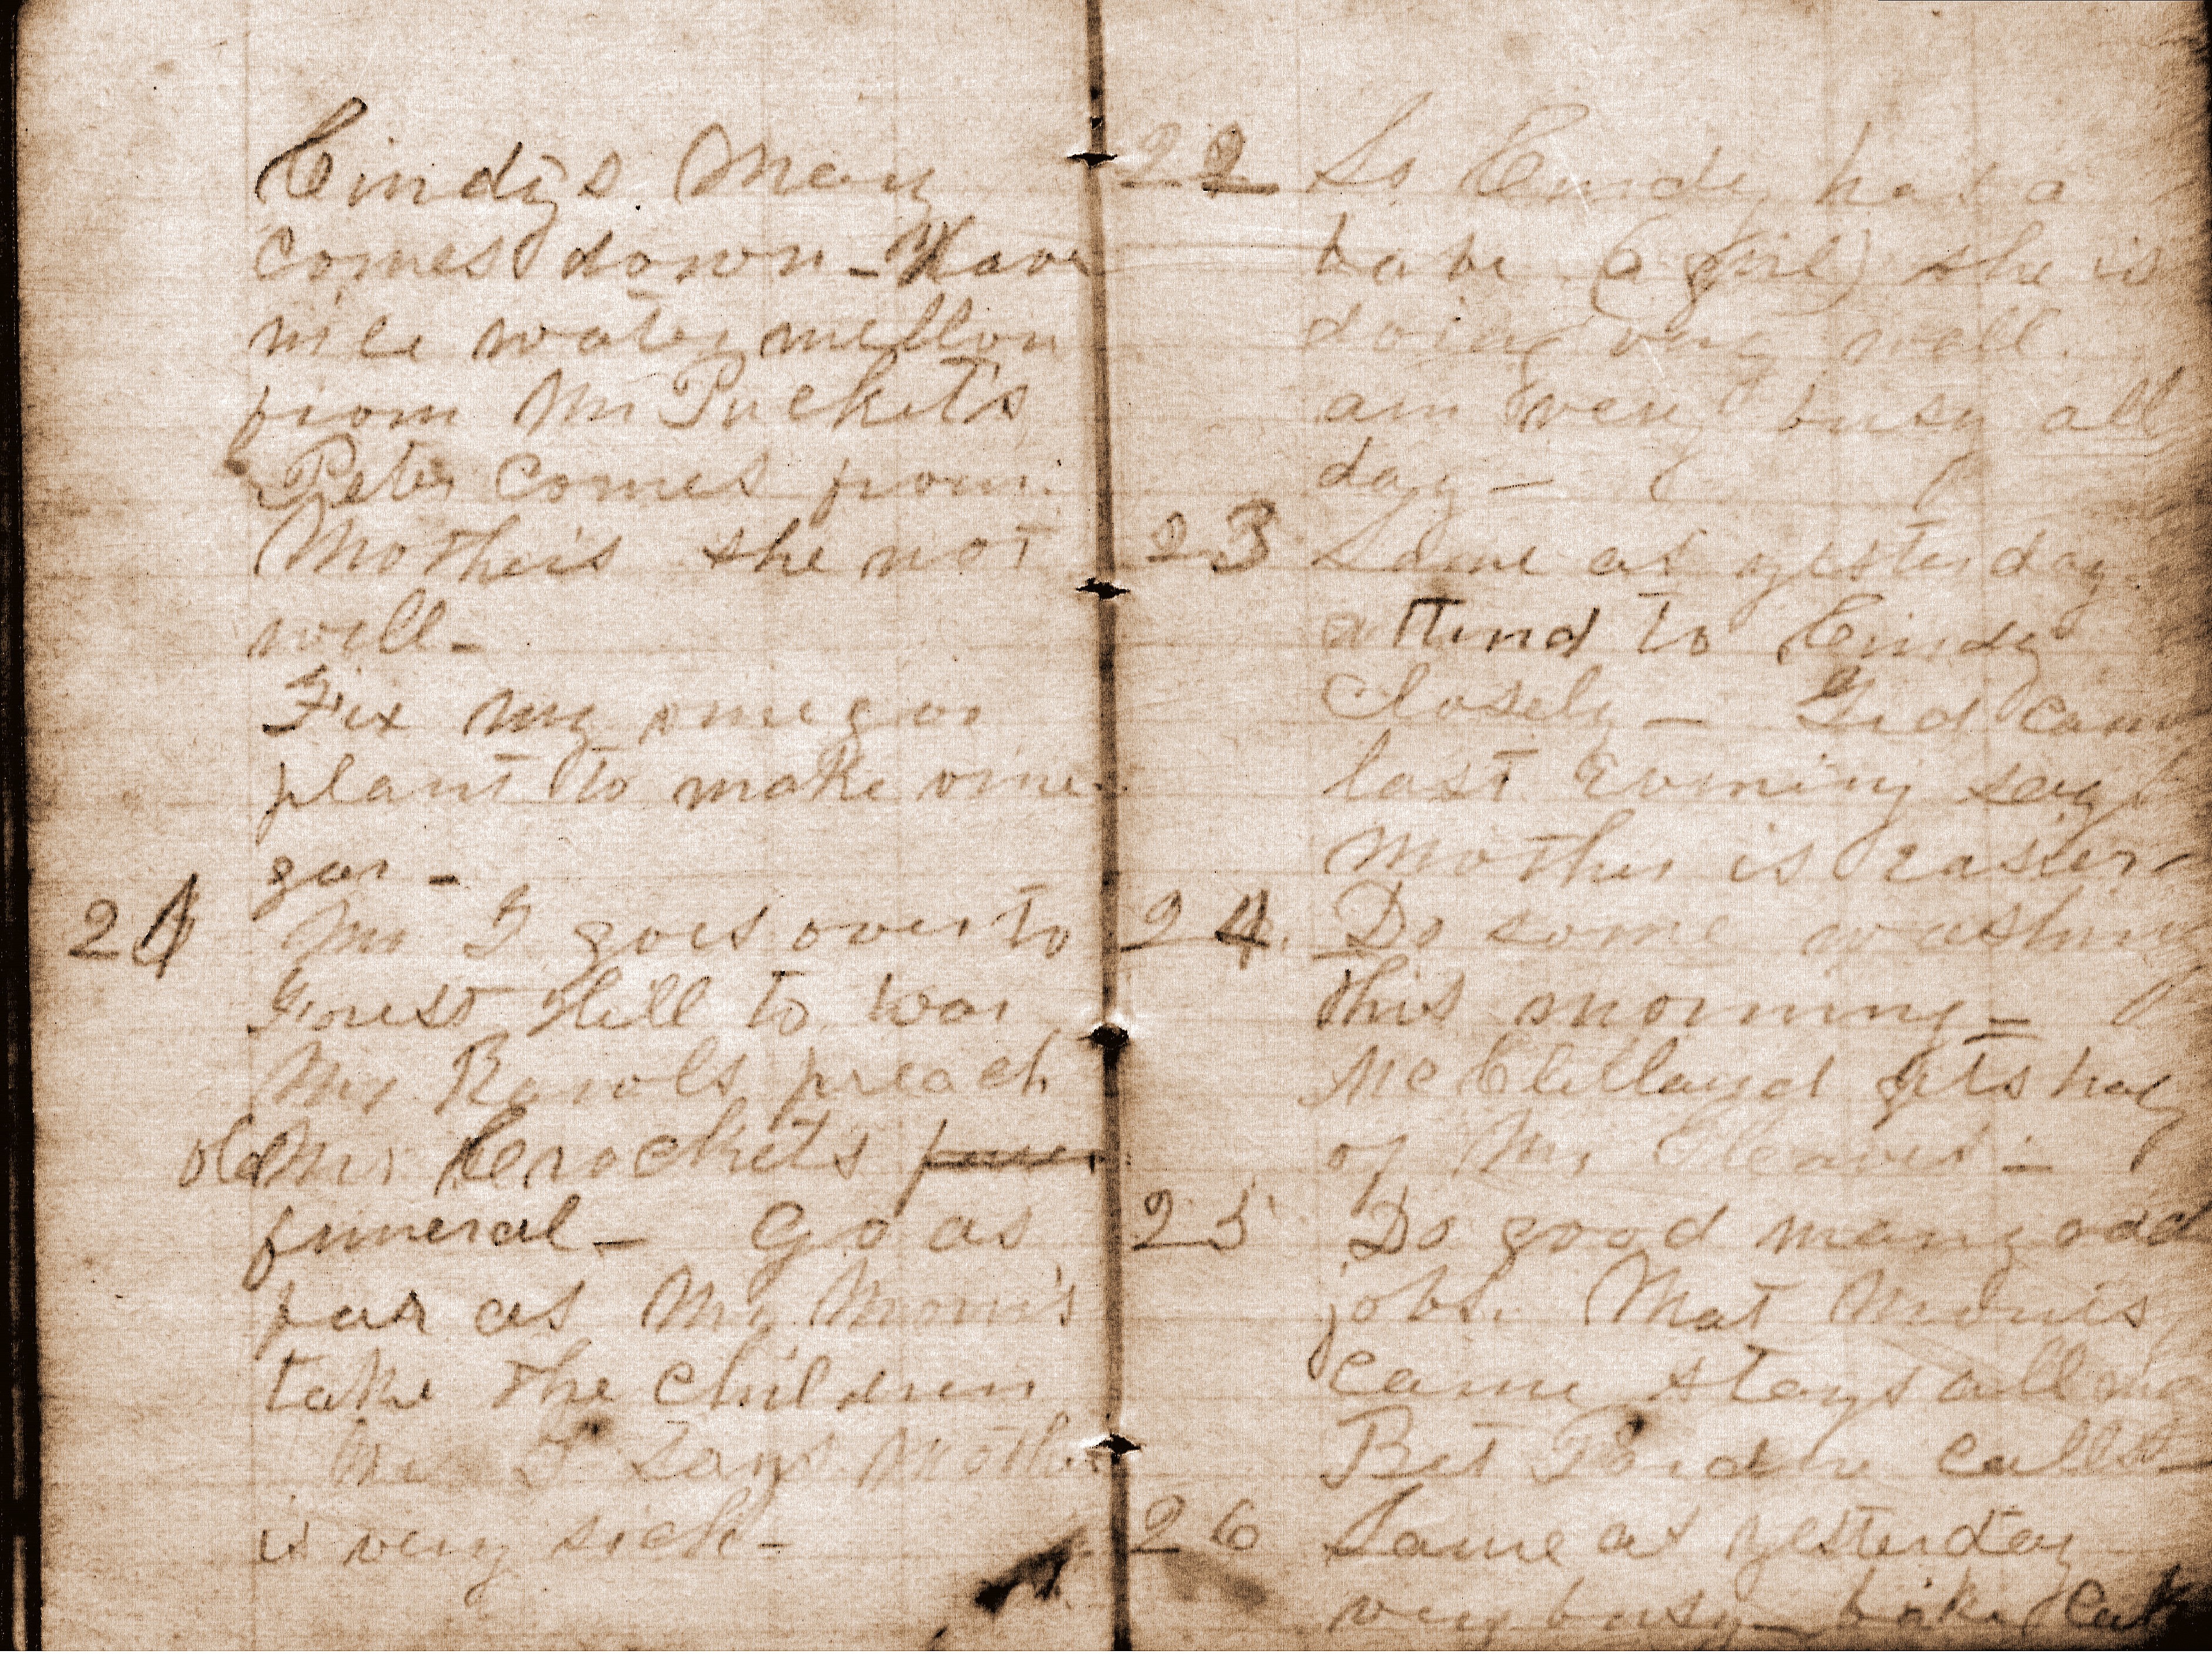 Cindys Mary
comes down - Have
nice water mellon
from Mr Puckets
Peter comes from
Mothers she not
well -
Fix my vinegar
plant to make vine
gar -
21 Mr G goes over to
Forest Hill to hear
Mr Rowols preach
old Mr Crockets
funeral - Go as
far as Mr Morris
take the children
Mr G says Mother
is very sick -
22 So Cindy has a
babe (a girl) she is
doing very well.
am very busy all
day -
23 Same as yesterday
attend to Cindy
Closely - Gid came
last Evening says
Mother is easier -
24. Do some washing
this morning -
McClelland gets hay
of Mr Cleaves -
25 Do good many odd
jobs. Mat Morris
came stays all
Bet calls
26 Same as yesterday
very busy - bake Cake